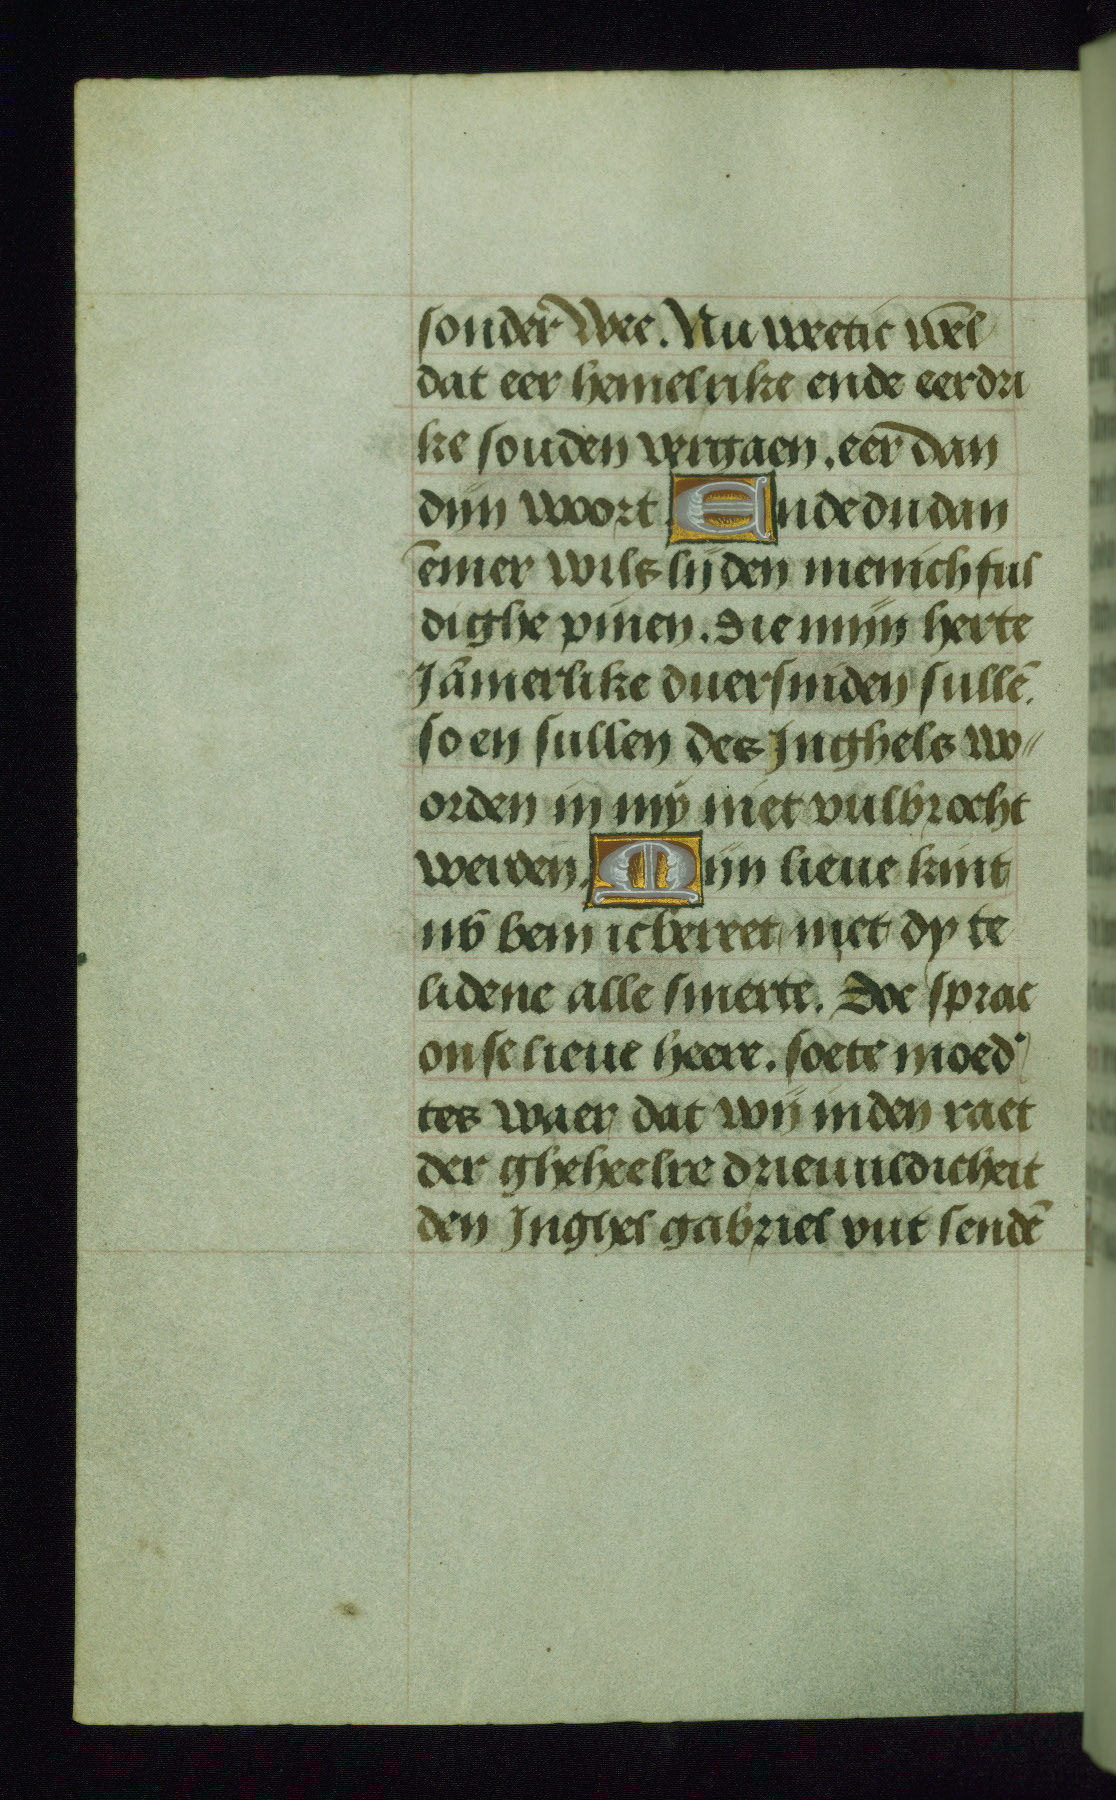 sonder wee. Nu weetic wel
dat eer hemelrike ende eerdri
ke souden vergaen. eer dan
dijn woort. Ende du dan
ēmer wils lijden menichful
dighe pinen. Die mijn herte
Jāmerlike duersniden sullē.
so en sullen des Jnghels wo〃
orden in mÿ niet vulbrocht
werden. Mijn lieue kint
nv bem ic bereet met dy te
lidene alle smerte. Doe sprac
onse lieue heere. soete moed᾽
tes waer dat wij inden raet
der gheheelre drieuuldicheit
den Jnghel gabriel vut sendē